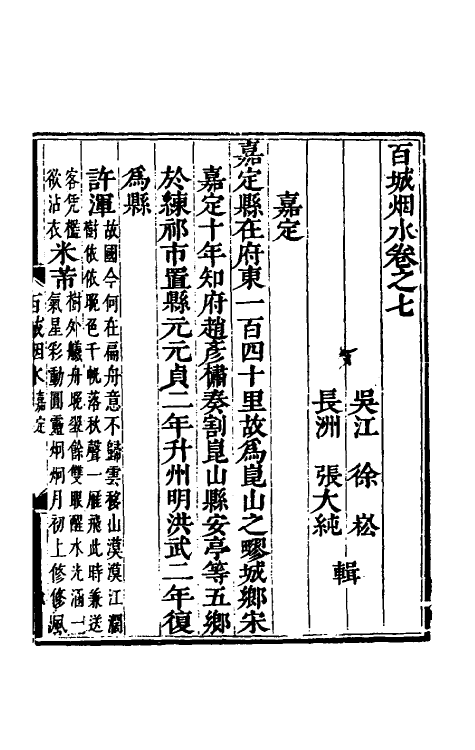 百城烟水卷之七
吳江 徐崧
長洲 張大純
輯
嘉定
嘉定縣在府東一百四十里故爲崑山之疁城鄉宋
嘉定十年知府趙彥橚奏割崑山縣安亭等五鄉
於練祁市置縣元元貞二年升州明洪武二年復
爲縣
許渾
故國今何在扁舟意不歸雲移山漠漠江濶
樹依依晚色千帆落秋聲一雁飛此時兼送
客凭檻
欲沾衣
米芾
樹外艤舟晚翠餘雙眼醒水光涵一
氣星彩動圓靈炯炯月初上修修風
百城烟水 嘉定